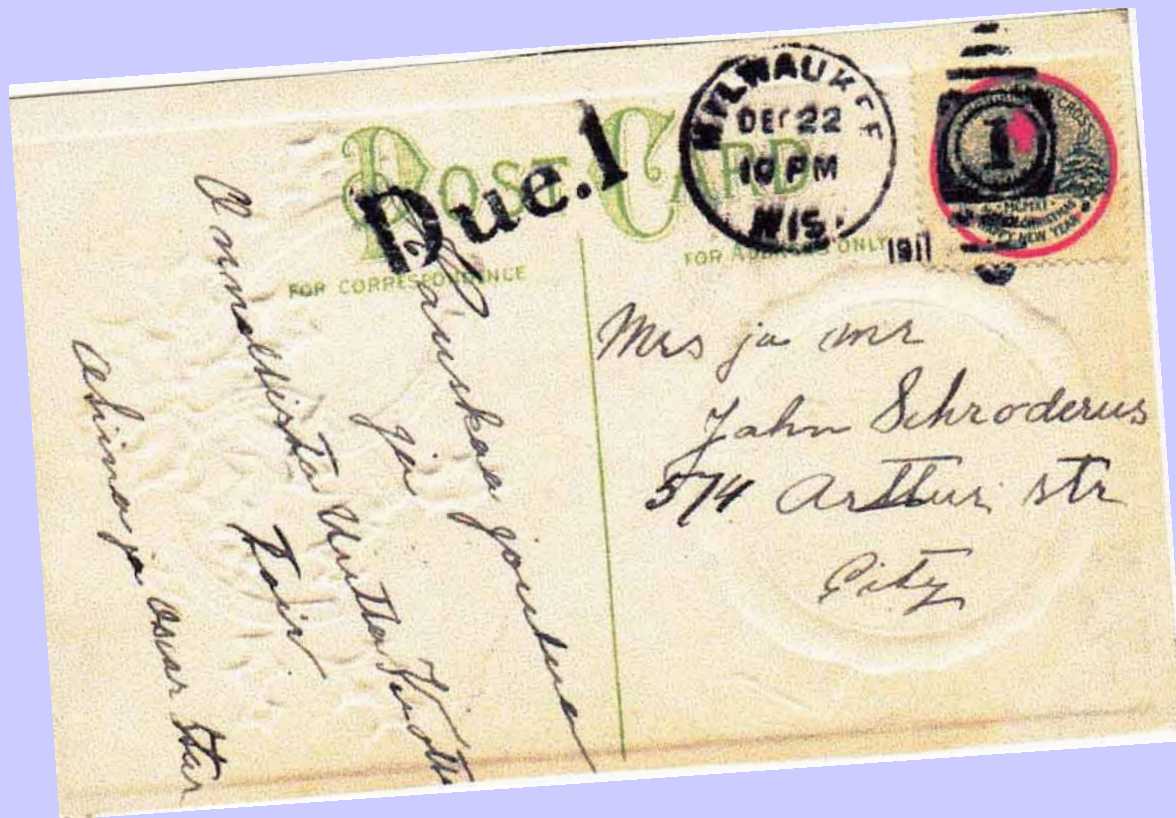 POST CARD
Due.1
MILWAUKEE
DEC 22
10 PM
WIS.
1911
1
CROSS
HAPPY NEW YEAR
FOR CORRESPONDENCE
FOR ADDRESS ONLY
Hauskaa joulua
ja
Onnellista Uutta Vuotta
Toiv
ja Oscar Star
Mrs ja mr
John Schroderus
574 Arthur str
City